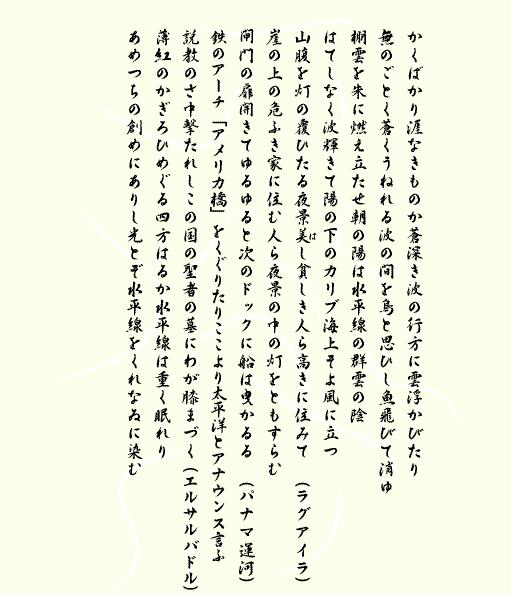 かくばかり涯なきものか蒼深き波の行方に雲浮かびたり
無のごとく蒼くうねれる波の間を鳥と思ひし魚飛びて消ゆ
棚雲を朱に燃え立たせ朝の陽は水平線の群雲の陰
はてしなく波輝きて陽の下のカリブ海上そよ風に立つ
山腹を灯の覆ひたる夜景美はし貧しき人ら高きに住みて (ラグアイラ)
崖の上の危ふき家に住む人ら夜景の中の灯をともすらむ
閘門の扉開きてゆるゆると次のドックに船は曳かるる (パナマ運河)
鉄のアーチ「アメリカ橋」をくぐりたりここより太平洋とアナウンス言ふ
説教のさ中撃たれしこの国の聖者の墓にわが膝まづく (エルサルバドル)
薄紅のかぎろひめぐる四方はるか水平線は重く眠れり
あめつちの創めにありし光とぞ水平線をくれなゐに染む